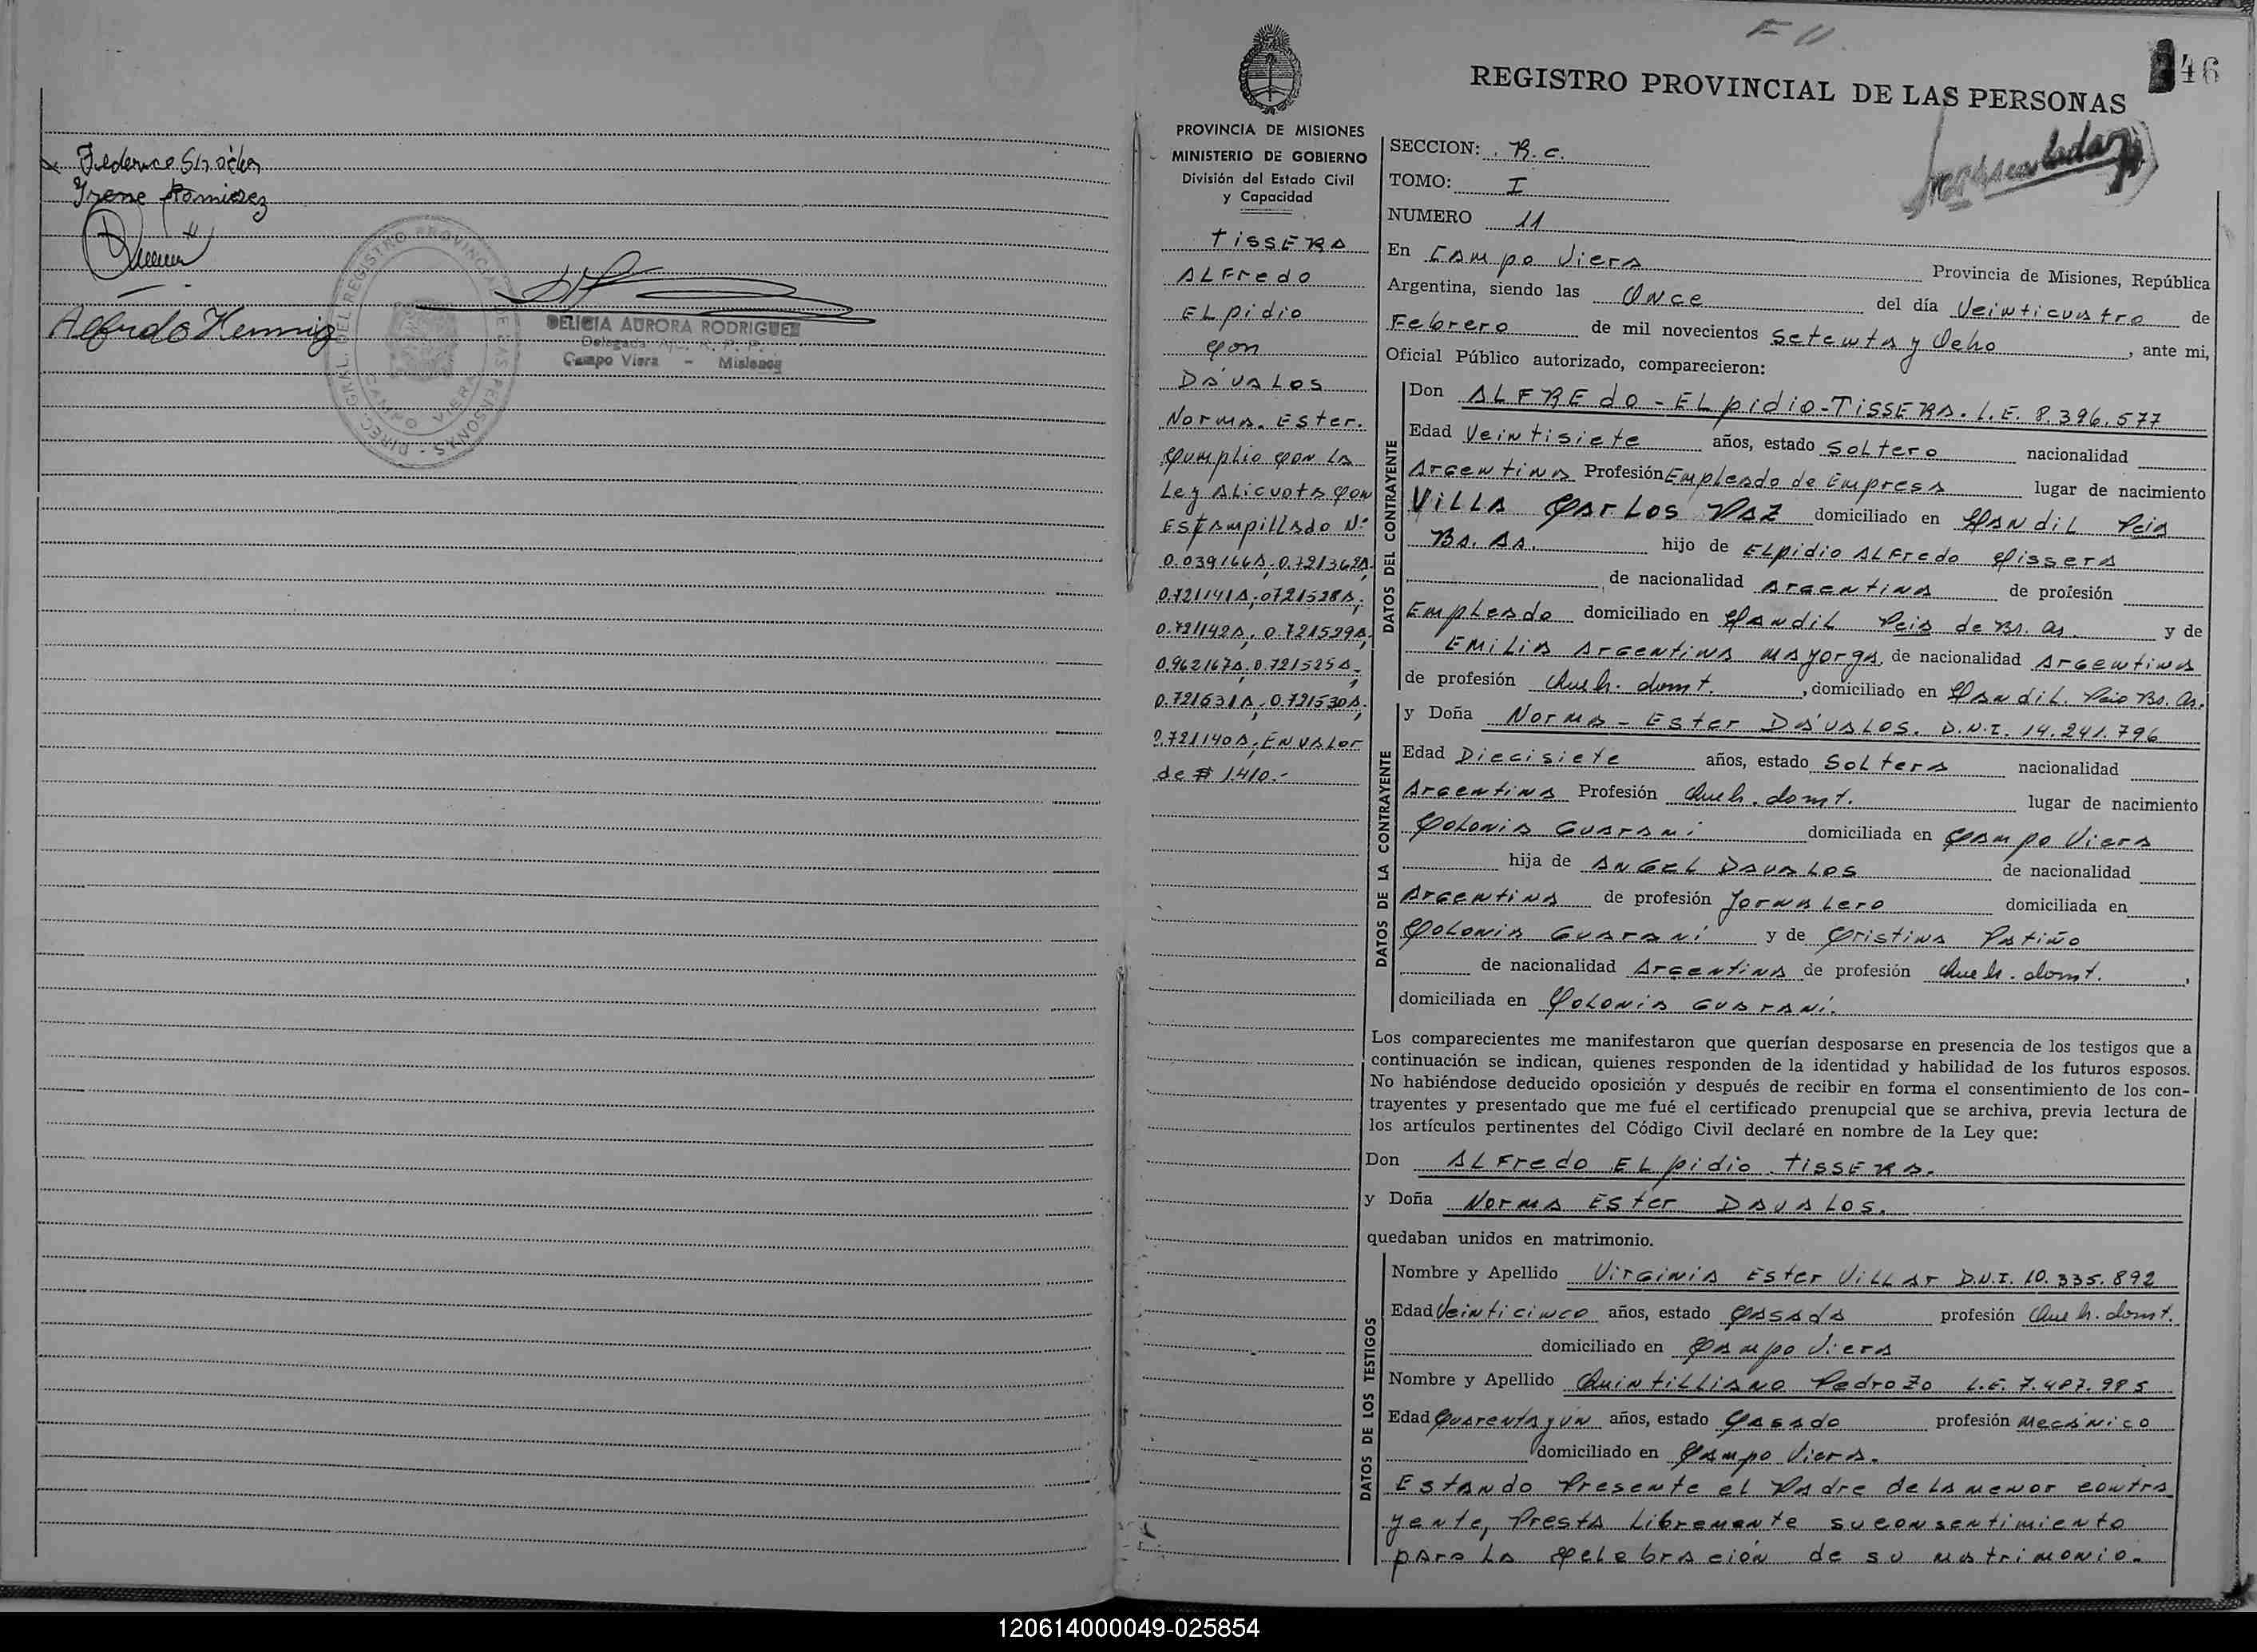 Irene Ramirez
Alfredo Hennig
DIREC. GRAL. DEL REGISTRO PROVINCIAL DE LAS PERSONAS
CAMPO VIERA
DELICIA AURORA RODRIGUEZ
Delegada
Campo Viera - Misiones
46
REGISTRO PROVINCIAL DE LAS PERSONAS
PROVINCIA DE MISIONES
MINISTERIO DE GOBIERNO
División del Estado Civil
y Capacidad
Tissera
Alfredo
Elpidio
Con
Dávalos
Norma. Ester.
Cumplio con la
Ley Alicuota con
Estampillado Nº
0.039166A; 0.721362A;
0.721141A; 0721528A;
0.721142A; 0.721529A;
0.962167A; 0.721525A;
0.721631A; 0.721530A;
0.721140A; En valor
de $ 1.410.-
SECCION: R. C.
TOMO: I
NUMERO 11
En Campo Viera Provincia de Misiones, República
Argentina, siendo las Once del día Veinticuatro de
Febrero de mil novecientos Setenta y Ocho, ante mi,
Oficial Público autorizado, comparecieron:
DATOS DEL CONTRAYENTE
Don Alfredo - Elpidio - Tissera. L.E. 8.396.577
Edad Veintisiete años, estado Soltero nacionalidad
Argentina Profesión Empleado de Empresa lugar de nacimiento
Villa Carlos Paz domiciliado en Tandil Pcia
Bs. As. hijo de Elpidio Alfredo Tissera
de nacionalidad Argentina de profesión
Empleado domiciliado en Tandil Pcia de Bs. As. y de
Emilia Argentina Mayorga, de nacionalidad Argentina
de profesión Queh. domt., domiciliado en Tandil. Pcia Bs. As.
DATOS DE LA CONTRAYENTE
y Doña Norma - Ester Dávalos. D.N.I. 14.241.796
Edad Diecisiete años, estado Soltera nacionalidad
Argentina Profesión Queh. domt. lugar de nacimiento
Colonia Guaraní domiciliada en Campo Viera
hija de Angel Davalos de nacionalidad
Argentina de profesión Jornalero domiciliada en
Colonia Guaraní y de Cristina Patiño
de nacionalidad Argentina de profesión Queh. domt.,
domiciliada en Colonia Guaraní.
Los comparecientes me manifestaron que querían desposarse en presencia de los testigos que a
continuación se indican, quienes responden de la identidad y habilidad de los futuros esposos.
No habiéndose deducido oposición y después de recibir en forma el consentimiento de los con-
trayentes y presentado que me fué el certificado prenupcial que se archiva, previa lectura de
los artículos pertinentes del Código Civil declaré en nombre de la Ley que:
Don Alfredo Elpidio Tissera.
y Doña Norma Ester Davalos.
quedaban unidos en matrimonio.
DATOS DE LOS TESTIGOS
Nombre y Apellido Virginia Ester Villar D.N.I. 10.335.892
Edad Veinticinco años, estado Casada profesión Queh. domt.
domiciliado en Campo Viera
Nombre y Apellido Quintilliano Pedrozo L.E. 7.487.985
Edad Cuarenta y un años, estado Casado profesión Mecánico
domiciliado en Campo Viera.
Estando Presente el Padre de la menor contra
yente, Presta libremente su consentimiento
para la Celebración de su matrimonio.
120614000049-025854